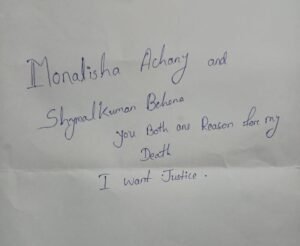 Monalisha Achary and
Shymalkuman Behena
you Both are Reason for my
Death
I want Justice.